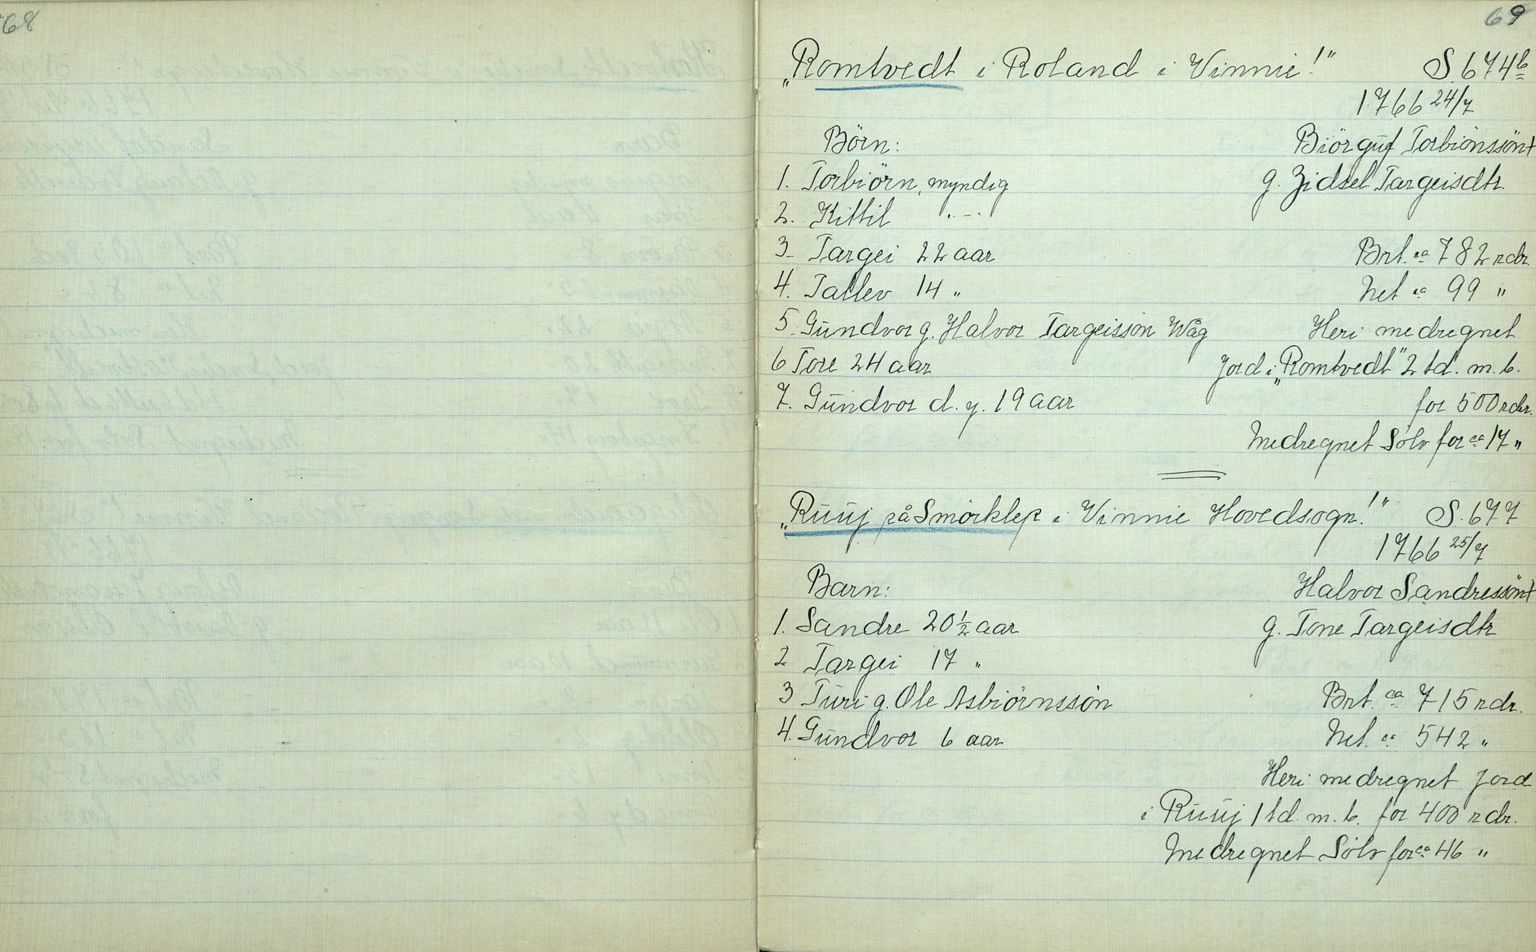 68
69
„Romtvedt i Roland i Vinnie!" S. 674b
1766 24/7
Börn: Biörguf Torbiönssön†
1. Torbiörn, myndig g. Zidsel Targeisdtr.
2. Kittil -"-
3. Targei 22 aar Brt. ca 782 rdr.
4. Tallev 14 „ Net ca 99 "
5. Gundvor g. Halvor Targeisson Wåg Heri medregnet
6 Tore 24 aar Jord i „Romtvedt" 2 td. m. b.
7. Gundvor d. y. 19 aar for 500 rdr.
Medregnet Sölv for ca 17 „
„Ruuj på Smörklep i Vinnie Hovedsogn!" S. 677
1766 25/7
Barn: Halvor Sandressön†
1. Sandre 20 ½ aar g. Tone Targeisdtr
2 Targei 17 „
3 Turi g. Ole Asbiörnssön Brt. ca 715 rdr.
4. Gundvor 6 aar Net. ca 542 "
Heri medregnet jord
i Ruuj 1 td. m. b. for 400 rdr.
Medregnet Sölv for ca 46 "